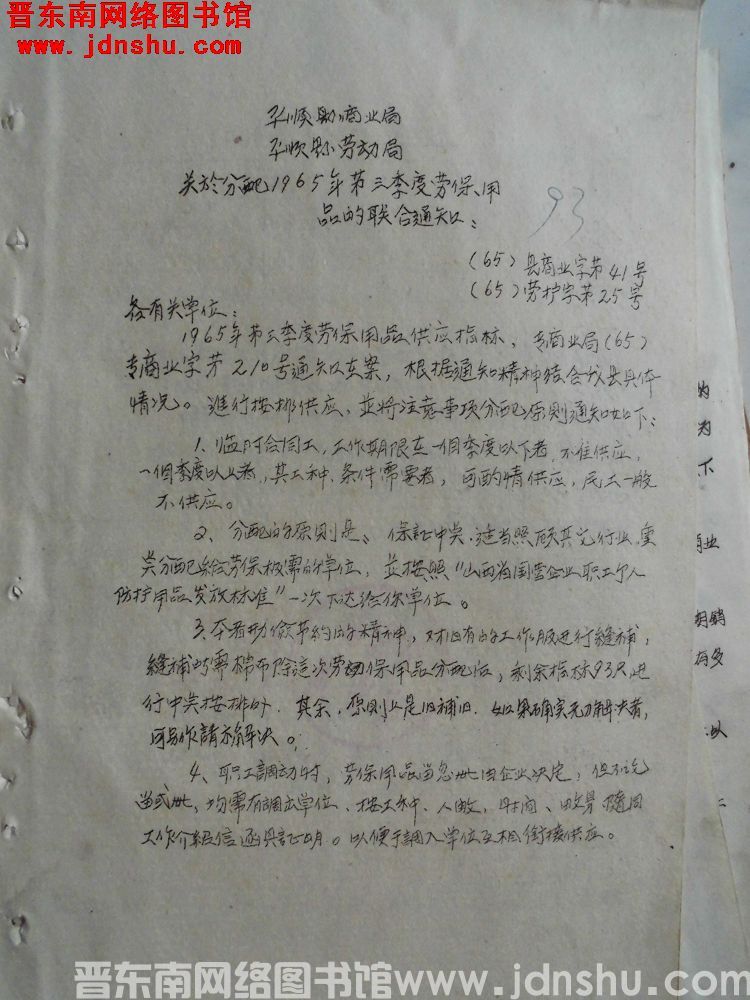 晋东南网络图书馆
www.jdnshu.com
平顺县商业局
平顺县劳动局
关於分配1965年第三季度劳保用
品的联合通知:
93
(65)县商业字第41号
(65)劳护字第25号
各有关单位:
1965年第三季度劳保用品供应指标、专商业局(65)
专商业字第210号通知在案,根据通知精神结合我县具体
情况。進行按排供应、並将注意事项分配原则通知如下:
1、临时合同工,工作期限在一個季度以下者,不准供应,
一個季度以上者,其工种、条件需要者,可酌情供应,民工一般
不供应。
2、分配的原则是:保証中央、适当照顾其它行业,重
点分配给劳保极需的单位,並按照“山西省国营企业职工个人
防护用品发放标准”一次下达给你单位。
3、本着勤儉节约的精神,对旧有的工作服进行縫補,
縫補所需棉布除這次劳动保用品分配后,剩余指标93尺进
行中央按排外、其余,原则上是旧補旧.如果确实无力解决者,
可另作請示解决。
4、职工調动时,劳保用品当
工作介紹信函具証明。以便于調入单位互相銜接供应。
的
为
下
商业
期銷
有多
以
晋东南网络图书馆www.jdnshu.com